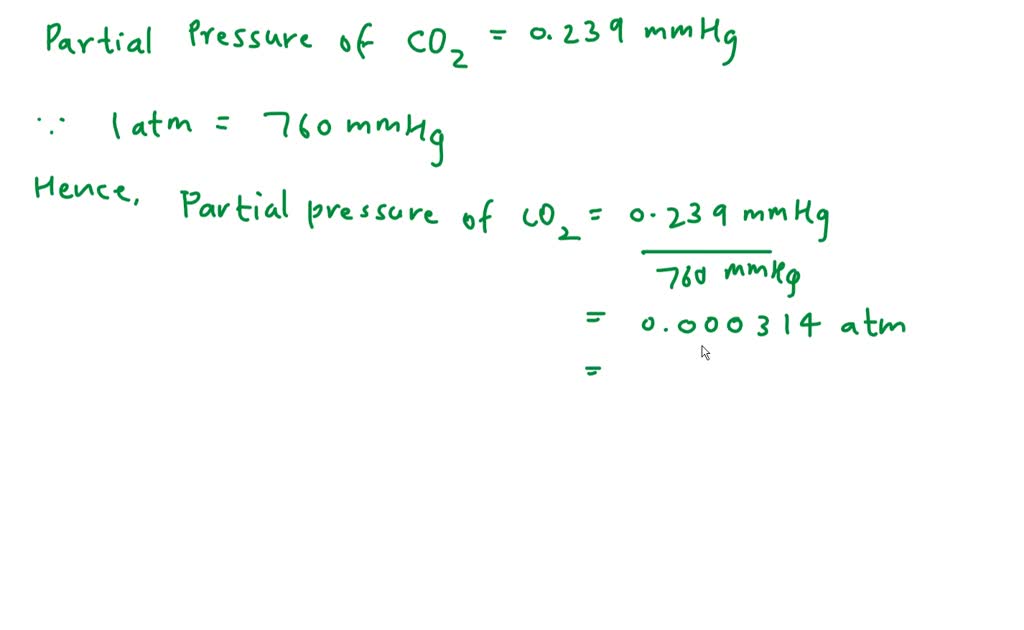 Partial Pressure of CO₂ = 0.239 mmHg
∵ 1 atm = 760 mmHg
Hence, Partial pressure of CO₂ = 0.239 mmHg
760 mmHg
= 0.000314 atm
=